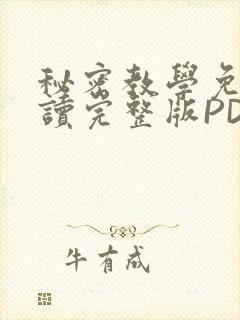 秘密教學免
讀完整版PD
牛有成